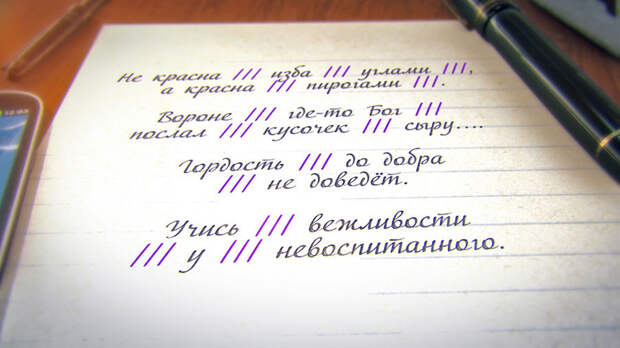 Не красна /// изба /// углами ///,
а красна /// пирогами ///.
Вороне /// где-то Бог ///
послал /// кусочек /// сыру....
Гордость /// до добра
/// не доведёт.
Учись /// вежливости
/// у /// невоспитанного.